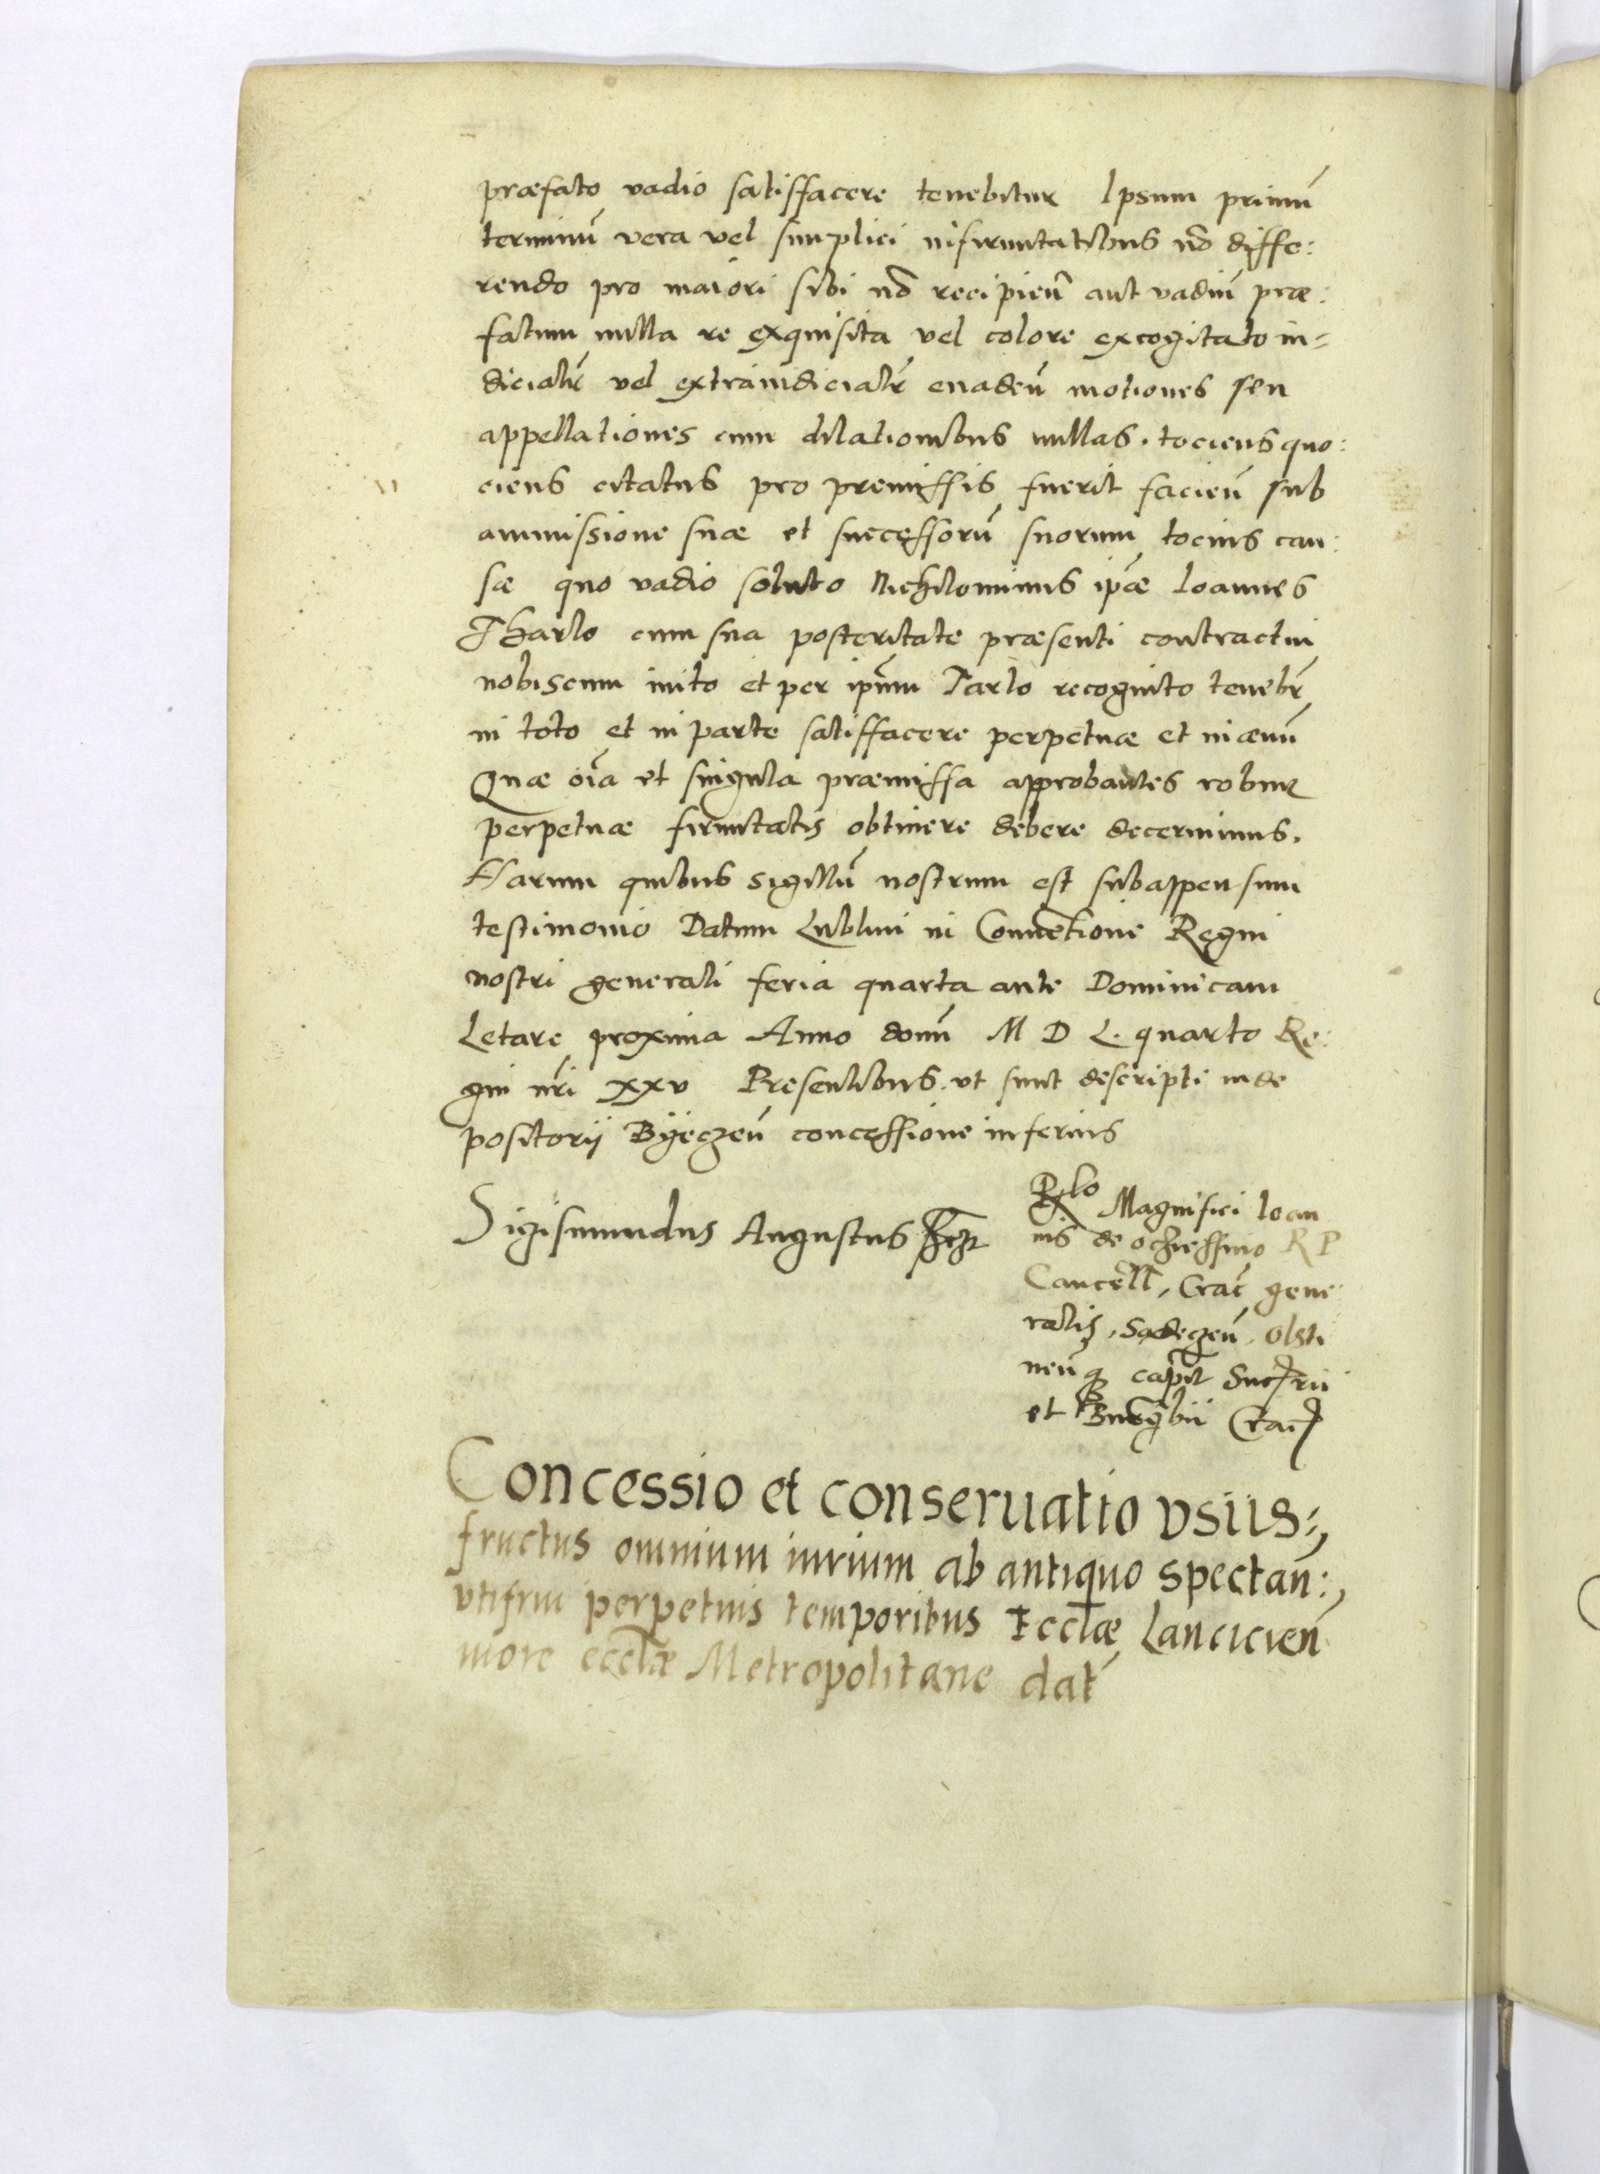 præfato vadio satisfacere tenebitur Ipsum primū
terminū vera vel simplici infirmitatibus nō diffe:
rendo pro maiori sibi nō recipieñ aut vadiū præ:
fatum nulla re exquisita vel colore excogitato iu=
dicialr̃ vel extraiudicialr̃ euadeñ motiones seu
appellationes cum dilationibus nullas. tociens quo:
ciens citatus pro premissis fuerit facieñ sub
ammissione suæ et successorū suorum tocius cau:
sæ quo vadio soluto Nichilominus ipāe Ioannes
Tharlo cum sua posteritate præsenti contractui
nobiscum inito et per ipm̄um Tarlo recognito tenebr̃
in toto et in parte satisfacere perpetuæ et in æuū
Quæ oīa et singula præmissa approbantes robur
perpetuæ firmitatis obtinere debere decernimus.
Harum quibus sigillū nostrum est subappensum
testimonio Datum Lublini in Conuētione Regni
nostri generali feria quarta ante Dominicam
Letare proxima Anno domī M D L. quarto Re:
gni nr̄i xxv Presentibus. vt sunt descripti in de
positorij Byeczeñ concessione inferius
Sigismundus Augustus Rex
Rlo Magnifici Ioan
nis de ochiessino R P
Cancell, Crac̄ gene
ralis, Sadeczeñ, olsti
neñ q capit Succ rii
et Burgbii Crac
Concessio et conseruatio vsus=,
fructus omnium iurium ab antiquo spectañ:,
vtifrui perpetuis temporibus Eccl̄æ Lancicieñ
more eccl̄æ Metropolitane dat̄